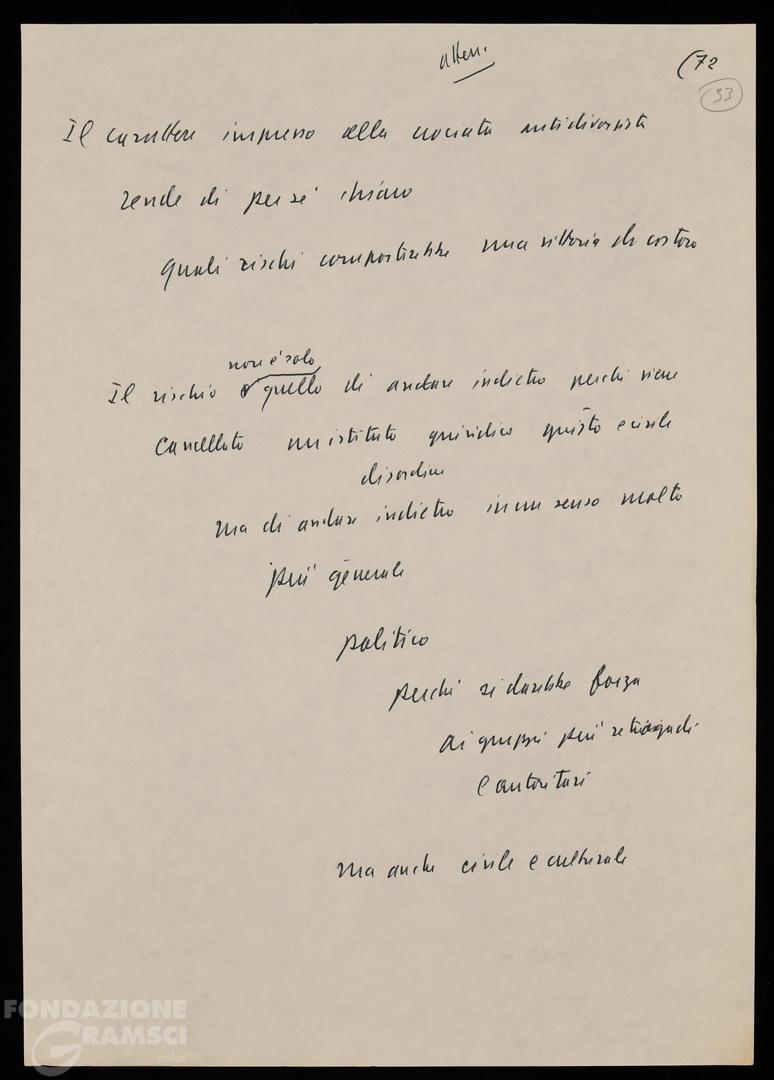 (72
33
Il carattere impresso alla crociata antidivorzista
rende di per sé chiaro
quali rischi comporterebbe una vittoria di costoro
non è solo
Il rischio è quello di andare indietro perché viene
cancellato un istituto giuridico giusto e civile
ma di andare indietro in un senso molto
più generale
politico
perché si darebbe forza
ai gruppi più retrogradi
e autoritari
ma anche civile e culturale
FONDAZIONE
GRAMSCI
onlus